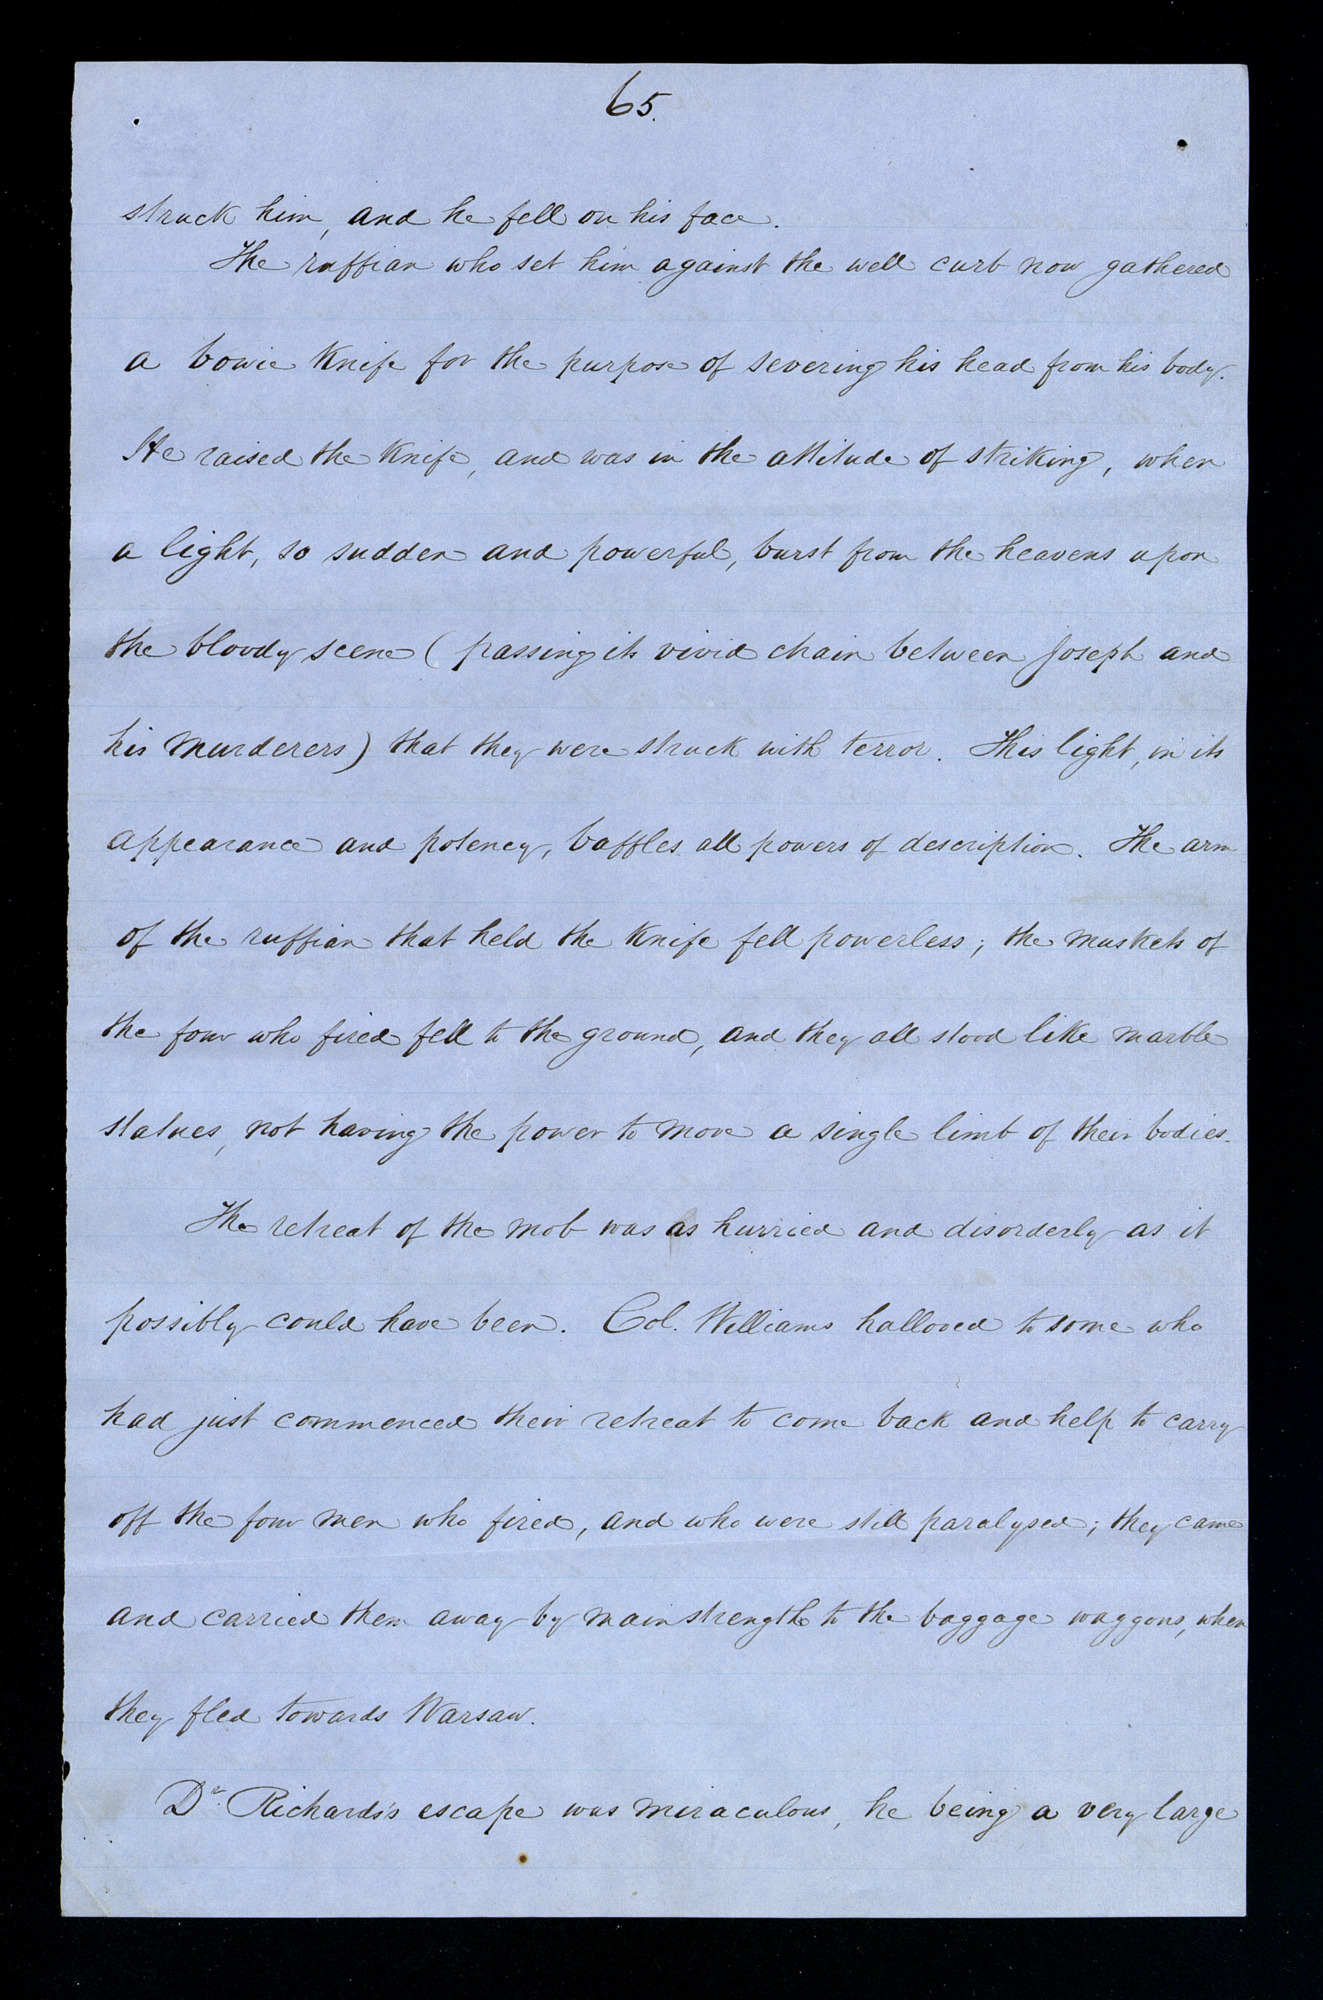 65.
struck him, and he fell on his face.
The ruffian who set him against the well curb now gathered
a bowie knife for the purpose of severing his head from his body.
He raised the knife, and was in the attitude of striking, when
a light, so sudden and powerful, burst from the heavens upon
the bloody scene (passing its vivid chain between Joseph and
his murderers) that they were struck with terror. This light, in its
appearance and potency, baffles all powers of description. The arm
of the ruffian that held the knife fell powerless; the muskets of
the four who fired fell to the ground, and they all stood like marble
statues, not having the power to move a single limb of their bodies.
The retreat of the mob was as hurried and disorderly as it
possibly could have been. Col. Williams hallooed to some who
had just commenced their retreat to come back and help to carry
off the four men who fired, and who were still paralysed; they came
and carried them away by main strength to the baggage waggons, when
they fled towards Warsaw.
Dr. Richards's escape was miraculous, he being a very large